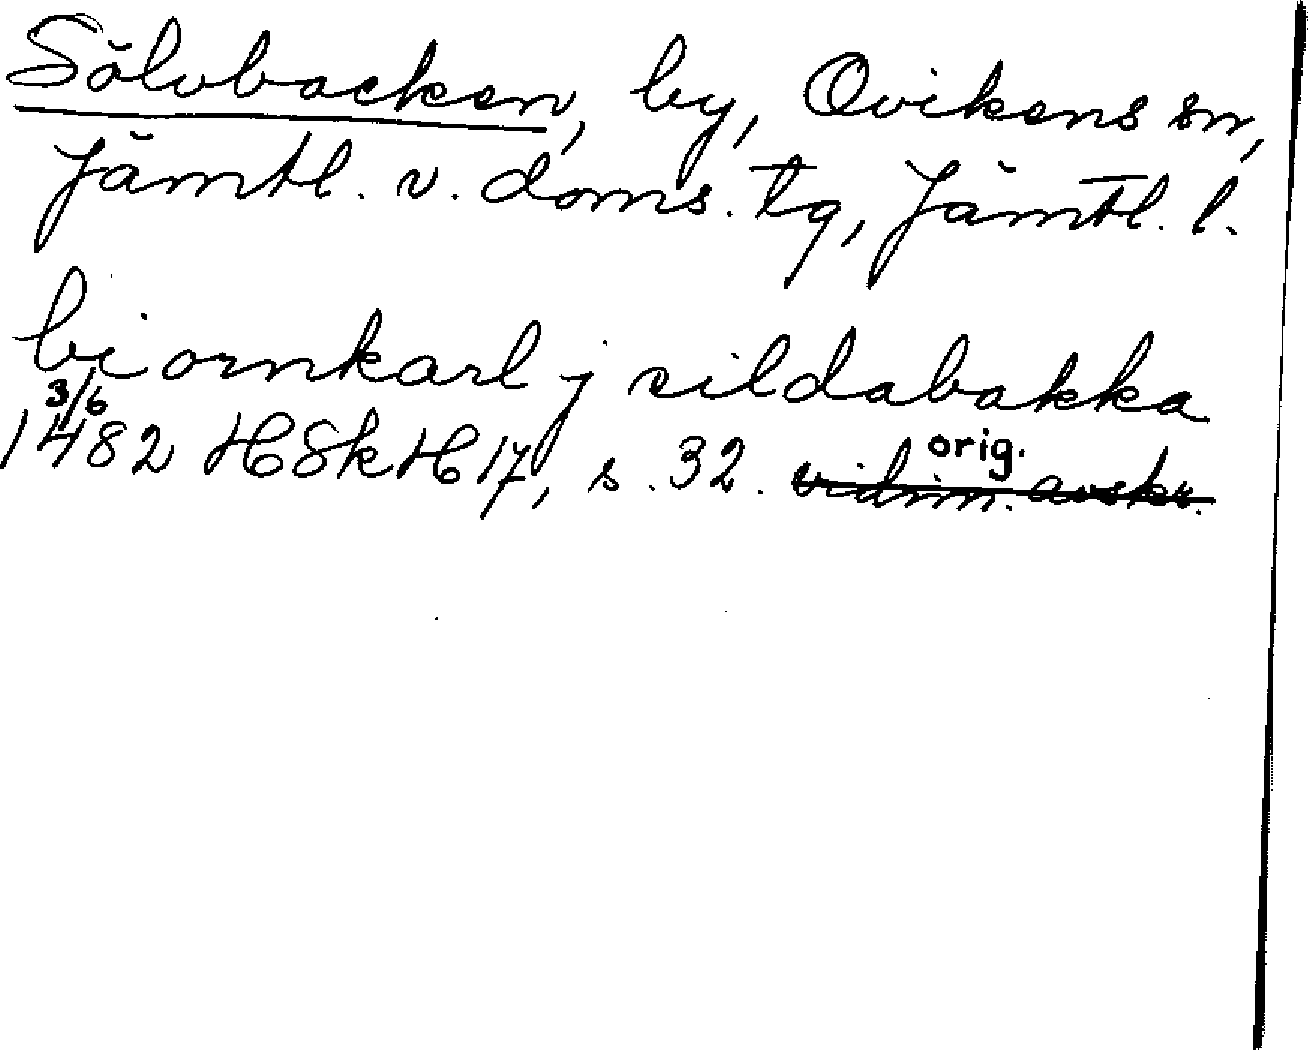 Sölvbacken, by, Ovikens sn,
Jämtl. v. doms. tg, Jämtl. l.
biornkarl j sildabakka
3/6
1482 HSkH 17, s. 32. orig.
vidim. avskr.